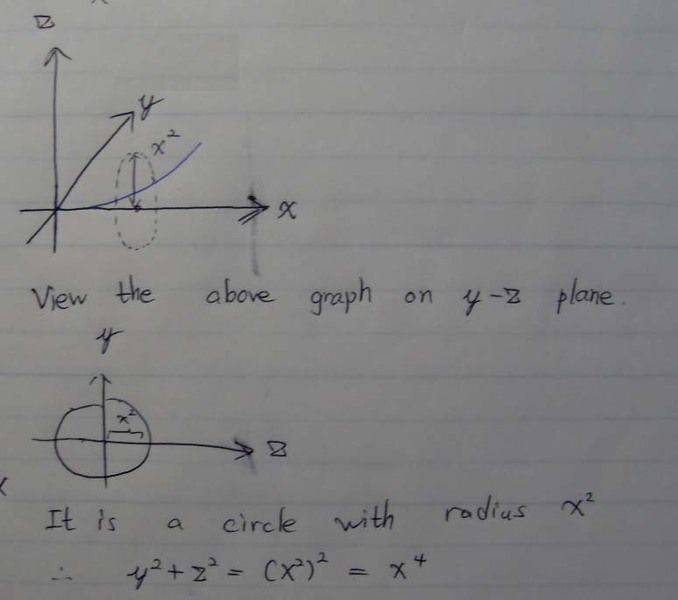 z
y
x²
x
View the above graph on y-z plane.
y
x²
z
It is a circle with radius x²
∴ y² + z² = (x²)² = x⁴